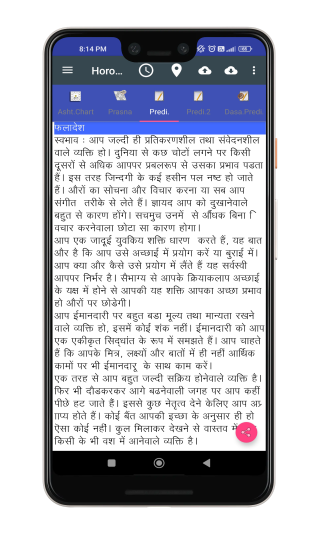 8:14 PM
Horo...
Asht Chart
Prasna
Predi.
Predi 2
Dasa Predi
फलादेश
स्वभाव : आप जल्दी ही प्रतिकरणशील तथा संवेदनशील
वाले व्यक्ति हो। दुनिया से कछ चोटों लगने पर किसी
दूसरों से अधिक आपपर प्रबलरूप से उसका प्रभाव पडता
है। इस तरह जिन्दगी के कई हसीन पल नष्ट हो जाते
हैं। औरों का सोचना और विचार करना या सब आप
संगीत तरीके से लेते हैं। ज्ञायद आप को दुखानेवाले
बहुत से कारण होंगे। सचमुच उनमें से औंधक बिना ि
विचार करनेवाला छोटा सा कारण होगा।
आप एक जादूई युवकिय शक्ति धारण करते हैं, यह बात
और है कि आप उसे अच्छाई में प्रयोग करें या बुराई में।
आप क्या और कैसे उसे प्रयोग में लैंते हैं यह सर्वस्वी
आपपर निर्भर है। सैभाग्य से आपके क्रियाकलाप अच्छाई
के यक्ष में होने से आपकी यह शक्ति आपका अच्छा प्रभाव
हो औरों पर छोडेगी।
आप ईमानदारी पर बहुत बडा मूल्य तथा मान्यता रखने
वाले व्यक्ति हो, इसमें कोई शंक नहीं। ईमानदारी को आप
एक एकीकृत सिद्धांत के रूप में समझते हैं। आप चाहते
हैं कि आपके मित्र, लक्ष्यों और बातों में ही नहीं आर्थिक
कामों पर भी ईमानदारृ के साथ काम करें।
एक तरह से आप बहुत जल्दी सक्रिय होनेवाले व्यक्ति है।
फिर भी दौडकरकर आगे बढनेवाली जगह पर आप कहीं
पीछे हट जाते हैं। इससे कुछ नेतृत्व देने केलिए आप अ
गाप्य होते हैं। कोई बैंत आपकी इच्छा के अनुसार ही हो
ऐसा कोई नहीं। कुल मिलाकर देखने से वास्तव में
किसी के भी वश में आनेवाले व्यक्ति है।